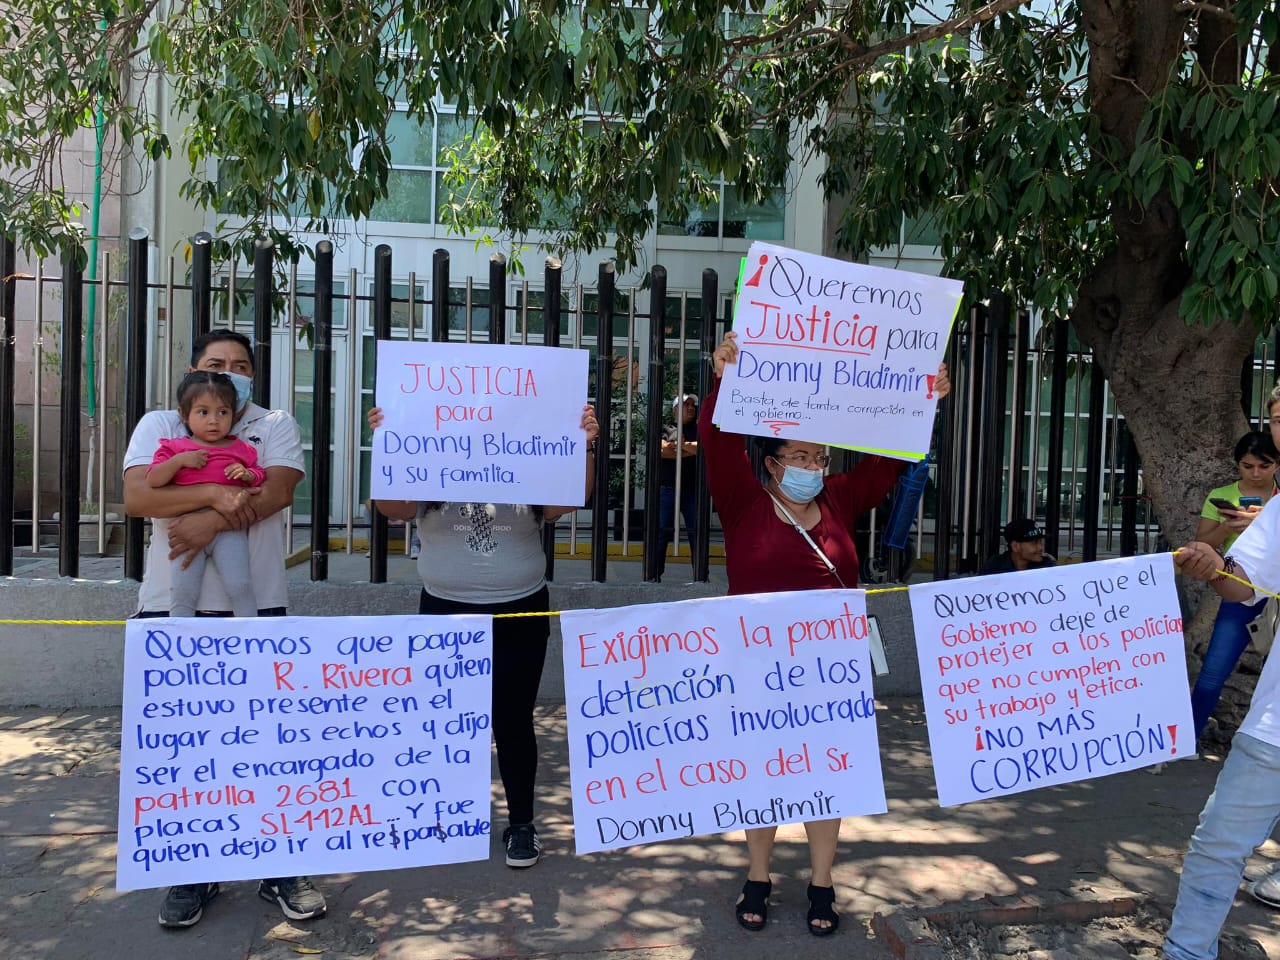 JUSTICIA
para
Donny Bladimir
y su familia.
¡Queremos
Justicia para
Donny Bladimir!
Basta de tanta corrupción en
el gobierno...
Queremos que pague
policía R. Rivera quien
estuvo presente en el
lugar de los echos y dijo
ser el encargado de la
patrulla 2681 con
placas SL442A1... Y fue
quien dejo ir al re$pon$able
Exigimos la pronta
detención de los
policías involucrado
en el caso del Sr.
Donny Bladimir.
Queremos que el
Gobierno deje de
protejer a los policías
que no cumplen con
su trabajo y etica.
¡NO MÁS
CORRUPCIÓN!